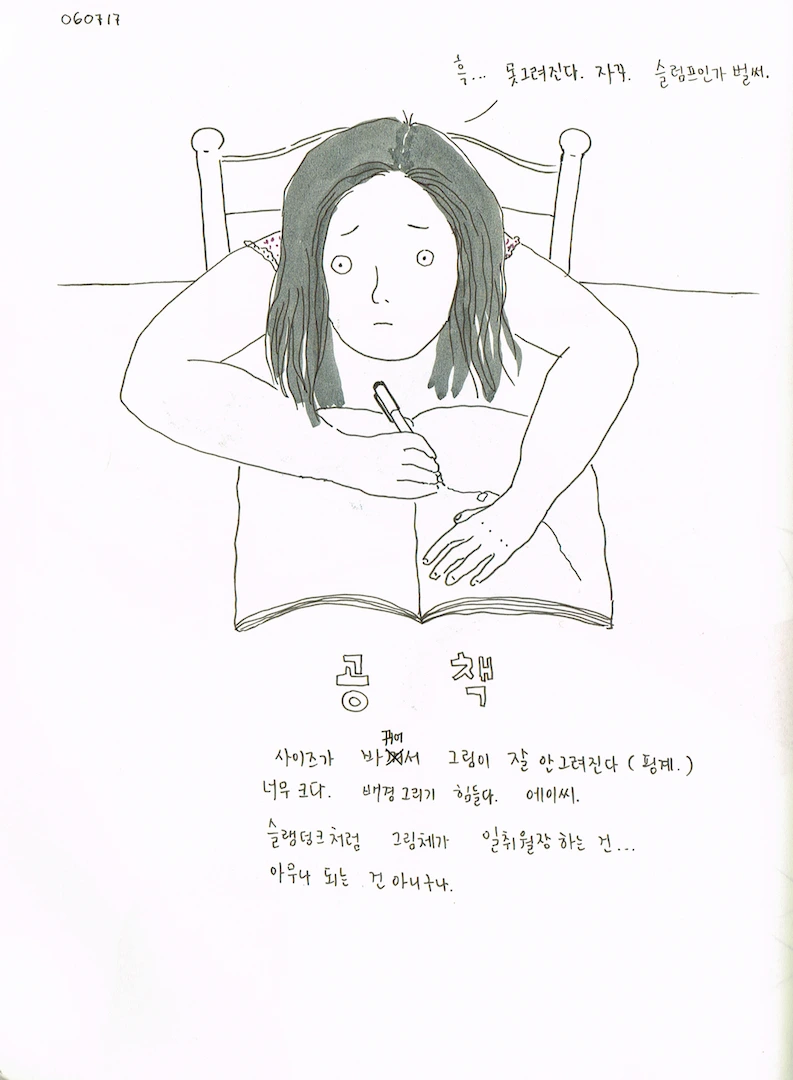 060717
흑... 못그려진다. 자꾸. 슬럼프인가 벌써.
공 책
사이즈가 바뀌어서 그림이 잘 안그려진다 ( 핑계. )
너무 크다. 배경 그리기 힘들다. 에이씨.
슬램덩크처럼 그림체가 일취월장 하는 건...
아무나 되는 건 아니구나.